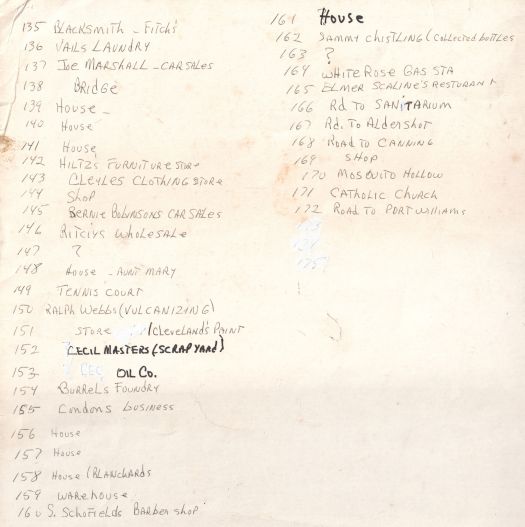 135 Blacksmith - Fitch's
136 Vails Laundry
137 Joe Marshall - Car Sales
138 Bridge
139 House -
140 House
141 House
142 Hiltzs Furniture Store
143 Cleyles Clothing Store
144 Shop
145 Bernie Robinsons Car Sales
146 Ritciys Wholesale
147 ?
148 House - Aunt Mary
149 Tennis Court
150 Ralph Webbs (Vulcanizing)
151 Store /Cleveland's Paint
152 Cecil Masters (Scrap Yard)
153 Oil Co.
154 Burrels Foundry
155 Condons business
156 House
157 House
158 House (Blanchards
159 warehouse
160 S. Schofields Barber shop
161 House
162 Sammy Chistling (collected bottles
163 ?
164 White Rose Gas Sta
165 Elmer Scaline's Resturant
166 Rd To Sanitarium
167 Rd. To Aldershot
168 Road to Canning
169 Shop
170 Mosquito Hollow
171 Catholic Church
172 Road to Port Williams
173
174
175